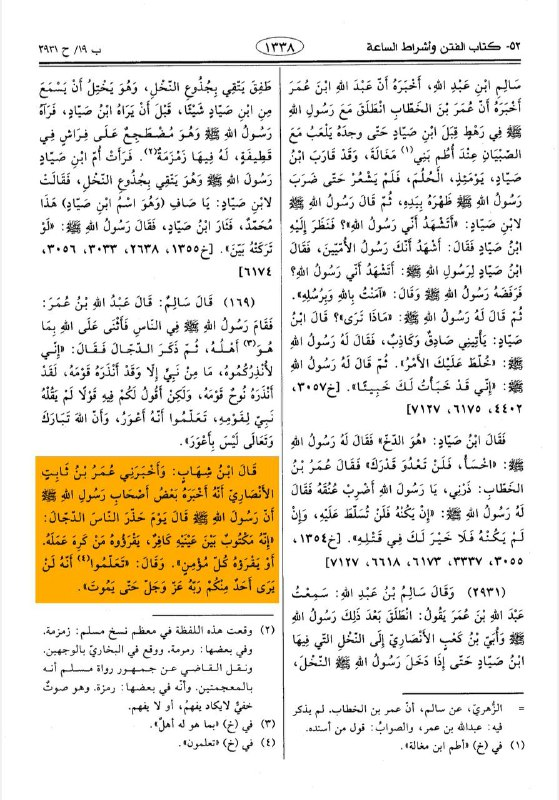 ٥٢- كتاب الفتن وأشراط الساعة
١٣٣٨
ب ١٩/ ح ٢٩٣١
سَالِمِ ابْنِ عَبْدِ اللهِ، أَخْبَرَهُ أَنَّ عَبْدَ اللهِ بْنَ عُمَرَ
أَخْبَرَهُ أَنَّ عُمَرَ بْنَ الْخَطَّابِ انْطَلَقَ مَعَ رَسُولِ اللهِ
ﷺ فِي رَهْطٍ قِبَلَ ابْنِ صَيَّادٍ حَتَّى وجدهُ يَلْعَبُ مَعَ
الصِّبْيَانِ عِنْدَ أُطُمِ بَنِي(١) مَغَالَةَ، وَقَدْ قَارَبَ ابْنُ
صَيَّادٍ، يَوْمَئِذٍ، الْحُلُمَ، فَلَمْ يَشْعُرْ حَتَّى ضَرَبَ
رَسُولُ اللهِ ﷺ ظَهْرَهُ بِيَدِهِ، ثُمَّ قَالَ رَسُولُ اللهِ ﷺ
لابْنِ صَيَّادٍ: «أَتَشْهَدُ أَنِّي رَسُولُ اللهِ»؟ فَنَظَرَ إِلَيْهِ
ابْنُ صَيَّادٍ فَقَالَ: أَشْهَدُ أَنَّكَ رَسُولُ الأُمِّيِّينَ، فَقَالَ
ابْنُ صَيَّادٍ لِرَسُولِ اللهِ ﷺ: أَتَشْهَدُ أَنِّي رَسُولُ اللهِ؟
فَرَفَضَهُ رَسُولُ اللهِ ﷺ وَقَالَ: «آمَنْتُ بِاللهِ وَبِرُسُلِهِ».
ثُمَّ قَالَ لَهُ رَسُولُ اللهِ ﷺ: «مَاذَا تَرَى»؟ قَالَ ابْنُ
صَيَّادٍ: يَأْتِينِي صَادِقٌ وَكَاذِبٌ، فَقَالَ لَهُ رَسُولُ اللهِ
ﷺ: «خُلِّطَ عَلَيْكَ الأَمْرُ». ثُمَّ قَالَ لَهُ رَسُولُ اللهِ
ﷺ: «إِنِّي قَدْ خَبَأْتُ لَكَ خَبِيئًا». [خ٣٠٥٧،
٤٤٠٢، ٦١٧٥، ٧١٢٧]
فَقَالَ ابْنُ صَيَّادٍ: «هُوَ الدُّخُّ» فَقَالَ لَهُ رَسُولُ اللهِ
ﷺ: «اخْسَأْ، فَلَنْ تَعْدُوَ قَدْرَكَ» فَقَالَ عُمَرُ بْنُ
الْخَطَّابِ: ذَرْنِي، يَا رَسُولَ اللهِ أَضْرِبْ عُنُقَهُ فَقَالَ
لَهُ رَسُولُ اللهِ ﷺ: «إِنْ يَكُنْهُ فَلَنْ تُسَلَّطَ عَلَيْهِ، وَإِنْ
لَمْ يَكُنْهُ فَلَا خَيْرَ لَكَ فِي قَتْلِهِ». [خ١٣٥٤،
٣٠٥٥، ٣٣٣٧، ٦١٧٣، ٦٦١٨، ٧١٢٧]
(٢٩٣١) وَقَالَ سَالِمُ بْنُ عَبْدِ اللهِ: سَمِعْتُ
عَبْدَ اللهِ بْنَ عُمَرَ يَقُولُ: انْطَلَقَ بَعْدَ ذَلِكَ رَسُولُ اللهِ
ﷺ وَأُبَيُّ بْنُ كَعْبٍ الأَنْصَارِيُّ إِلَى النَّخْلِ الَّتِي فِيهَا
ابْنُ صَيَّادٍ حَتَّى إِذَا دَخَلَ رَسُولُ اللهِ ﷺ النَّخْلَ،
= الزُّهريّ، عن سالم، أنّ عمر بن الخطاب. لم يذكر
فيه: عبدالله بن عمر، والصوابُ: قول من أسنده.
(١) في (خ) «أطم ابن مغالة».
طَفِقَ يَتَّقِي بِجُذُوعِ النَّخْلِ، وَهُوَ يَخْتِلُ أَنْ يَسْمَعَ
مِنِ ابْنِ صَيَّادٍ شَيْئًا، قَبْلَ أَنْ يَرَاهُ ابْنُ صَيَّادٍ، فَرَآهُ
رَسُولُ اللهِ ﷺ وَهُوَ مُضْطَجِعٌ عَلَى فِرَاشٍ فِي
قَطِيفَةٍ، لَهُ فِيهَا زَمْزَمَةٌ(٢). فَرَأَتْ أُمُّ ابْنِ صَيَّادٍ
رَسُولَ اللهِ ﷺ وَهُوَ يَتَّقِي بِجُذُوعِ النَّخْلِ، فَقَالَتْ
لابْنِ صَيَّادٍ: يَا صَافِ (وَهُوَ اسْمُ ابْنِ صَيَّادٍ) هَذَا
مُحَمَّدٌ، فَثَارَ ابْنُ صَيَّادٍ، فَقَالَ رَسُولُ اللهِ ﷺ: «لَوْ
تَرَكَتْهُ بَيَّنَ». [خ١٣٥٥، ٢٦٣٨، ٣٠٣٣، ٣٠٥٦،
٦١٧٤]
(١٦٩) قَالَ سَالِمٌ: قَالَ عَبْدُ اللهِ بْنُ عُمَرَ:
فَقَامَ رَسُولُ اللهِ ﷺ فِي النَّاسِ فَأَثْنَى عَلَى اللهِ بِمَا
هُوَ(٣) أَهْلُهُ، ثُمَّ ذَكَرَ الدَّجَّالَ فَقَالَ: «إِنِّي
لأُنْذِرُكُمُوهُ، مَا مِنْ نَبِيٍّ إِلَّا وَقَدْ أَنْذَرَهُ قَوْمَهُ، لَقَدْ
أَنْذَرَهُ نُوحٌ قَوْمَهُ، وَلَكِنْ أَقُولُ لَكُمْ فِيهِ قَوْلًا لَمْ يَقُلْهُ
نَبِيٌّ لِقَوْمِهِ، تَعَلَّمُوا أَنَّهُ أَعْوَرُ، وَأَنَّ اللهَ تَبَارَكَ
وَتَعَالَى لَيْسَ بِأَعْوَرَ».
قَالَ ابْنُ شِهَابٍ: وَأَخْبَرَنِي عُمَرُ بْنُ ثَابِتٍ
الأَنْصَارِيُّ أَنَّهُ أَخْبَرَهُ بَعْضُ أَصْحَابِ رَسُولِ اللهِ ﷺ
أَنَّ رَسُولَ اللهِ ﷺ قَالَ يَوْمَ حَذَّرَ النَّاسَ الدَّجَّالَ:
«إِنَّهُ مَكْتُوبٌ بَيْنَ عَيْنَيْهِ كَافِرٌ، يَقْرَؤُهُ مَنْ كَرِهَ عَمَلَهُ.
أَوْ يَقْرَؤُهُ كُلُّ مُؤْمِنٍ». وَقَالَ: «تَعَلَّمُوا(٤) أَنَّهُ لَنْ
يَرَى أَحَدٌ مِنْكُمْ رَبَّهُ عَزَّ وَجَلَّ حَتَّى يَمُوتَ».
(٢) وقعت هذه اللفظة في معظم نسخ مسلم: زمزمة.
وفي بعضها: رمرمة. ووقع في البخاري بالوجهين.
ونقل القاضي عن جمهور رواة مسلم أنه
بالمعجمتين. وأنّه في بعضها: رمزة. وهو صوتٌ
خفيٌّ لايكاد يفهم، أو لا يفهم.
(٣) في (خ) «بما هو له أهلٌ».
(٤) في (خ) «تعلمون».